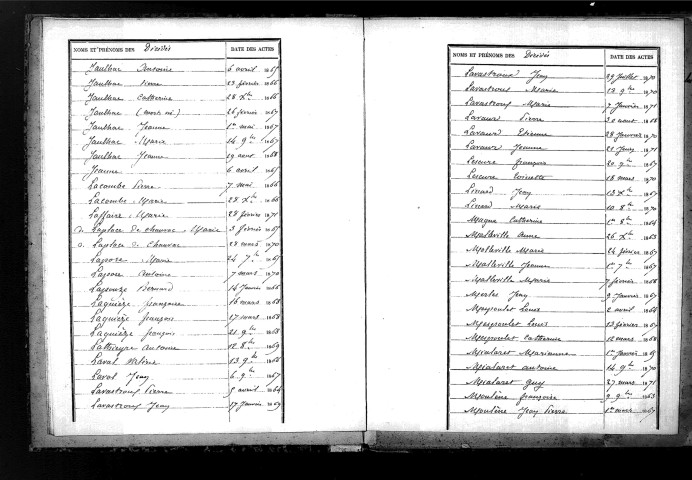 NOMS ET PRÉNOMS DES Décédés DATE DES ACTES
Jaulhac Antoine 6 avril 1867
Jaulhac Pierre 23 février 1866
Jaulhac Catherine 28 Xbre 1866
Jaulhac (mort né) 26 février 1867
Jaulhac Jeanne 1er mai 1867
Jaulhac Marie 14 9bre 1867
Jaulhac Jeanne 19 1868
Jeanne 6 avril 1867
Lacombe Pierre 7 mai 1866
Lacombe Marie 28 Xbre 1866
Laffaire Marie 28 février 1871
Laplace de chauvac Marie 3 février 1867
Laplace de Chauvac 28 mars 1870
Marie 24 7bre 1867
Antoine 7 mars 1870
Bernard 14 Janvier 1866
Laquièze françoise 16 mars 1868
Laquièze françois 17 mars 1868
Laquièze françois 21 9bre 1868
Antoine 12 8bre 1869
Laval 13 9bre 1866
Laval Jean 6 9bre 1867
Lavastroux Pierre avril 1864
Lavastroux Jean 17 Janvier 1869
NOMS ET PRÉNOMS DES Décédés DATE DES ACTES
Lavastroux Jean 29 Juillet 1870
Lavastroux Marie 13 9bre 1870
Lavastroux Marie 7 Janvier 1871
Lavaur Pierre 30 août 1868
Lavaur Etienne 28 1870
Lavaur Jeanne 21 1871
Lescure françois 20 9bre 1867
Lescure Toinette 18 mars 1870
Linard Jean 13 Xbre 1867
Linard Marie 10 8bre 1870
Magne Catherine 1er 8bre 1864
Malleville Anne 26 Xbre 1863
Malleville Marie 24 février 1867
Malleville 1er 7bre 1867
Malleville Marie 7 février 1868
Jean 9 Janvier 1867
Louis 2 avril 1868
Louis 13 février 1867
Catherine 12 mars 1868
Mialaret Marianne 1er Janvier 1865
Mialaret Antoine 14 9bre 1870
Mialaret Guy 27 mars 1871
Moulène françoise 9 9bre 1863
Moulène Jean Pierre 1er mars 1867